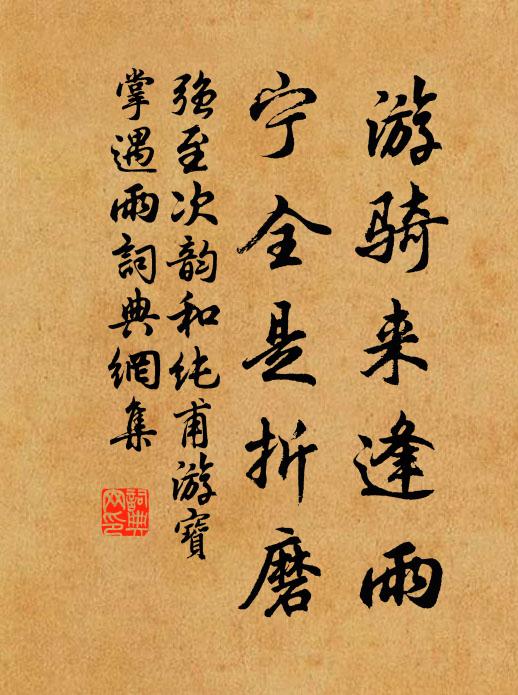 游骑来逢雨
宁全是折磨
強至次韵和纯甫游寶
掌遇雨詞典網集
詞典
网印